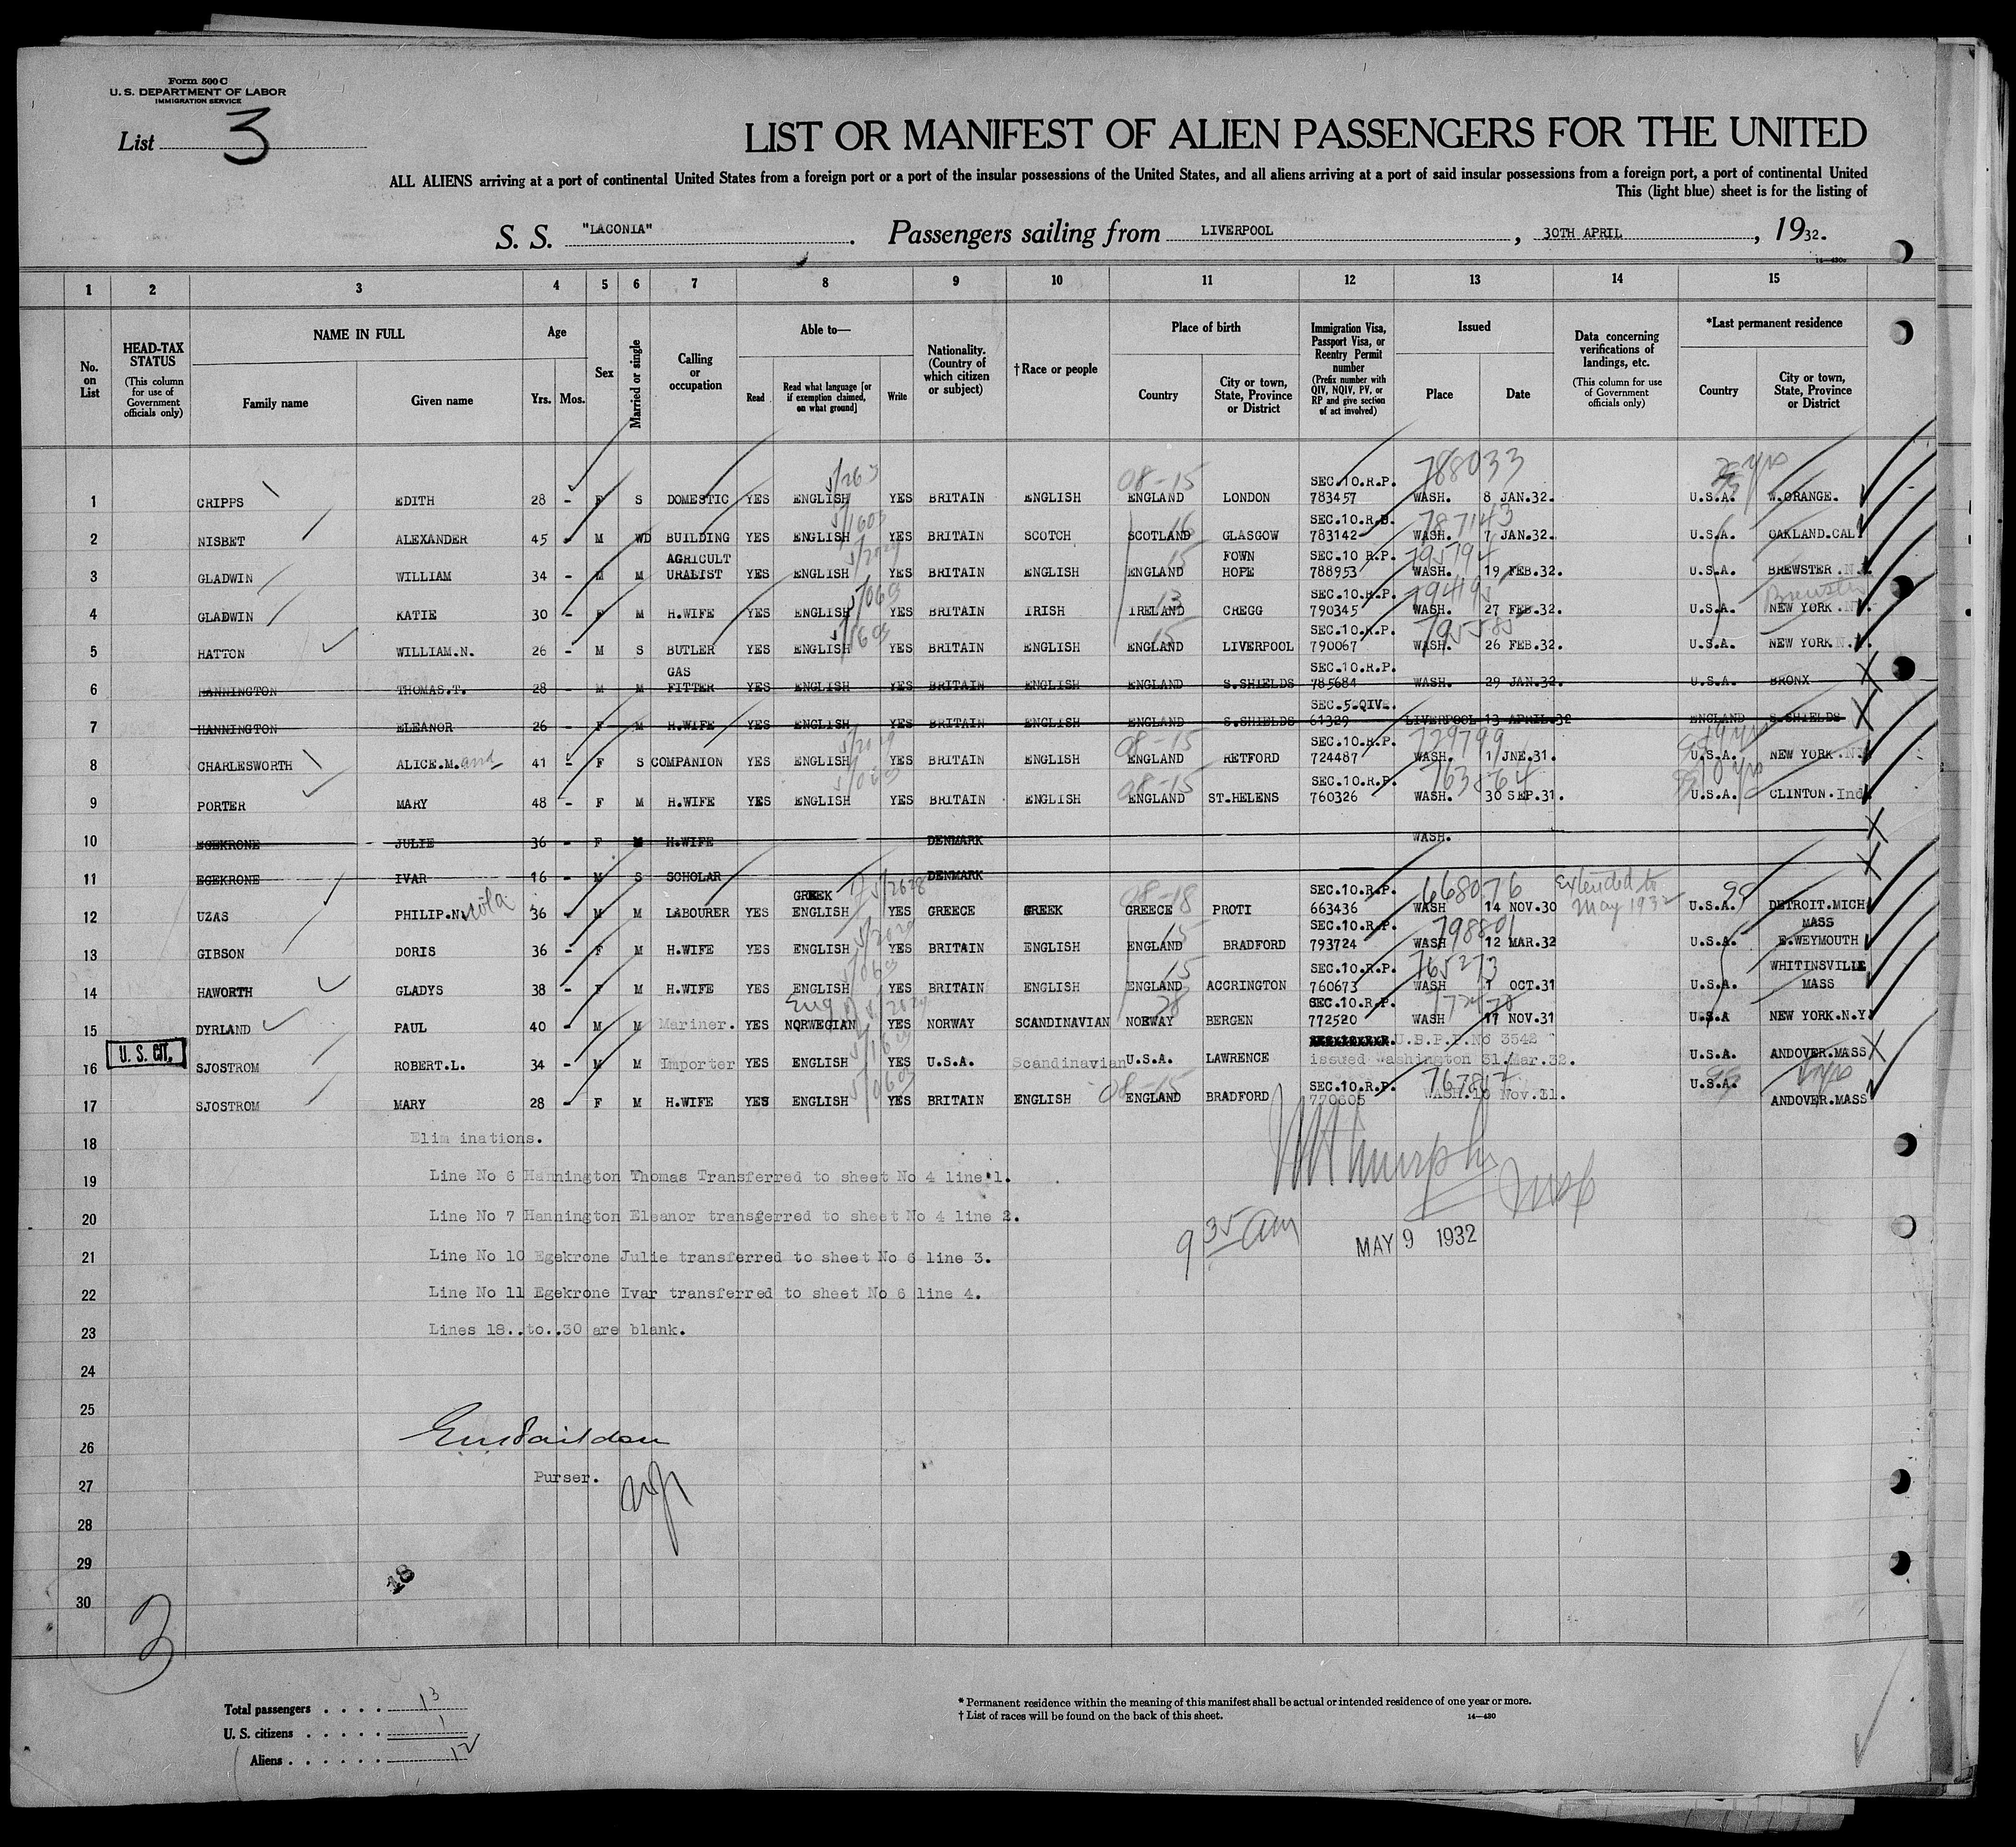 Form 500 C
U. S. DEPARTMENT OF LABOR
IMMIGRATION SERVICE
List 3
LIST OR MANIFEST OF ALIEN PASSENGERS FOR THE UNITED
ALL ALIENS arriving at a port of continental United States from a foreign port or a port of the insular possessions of the United States, and all aliens arriving at a port of said insular possessions from a foreign port, a port of continental United
This (light blue) sheet is for the listing of
S. S. "LACONIA". Passengers sailing from LIVERPOOL, 30TH APRIL, 1932.
14—430a
1 2 3 4 5 6 7 8 9 10 11 12 13 14 15
No. on List
HEAD-TAX STATUS (This column for use of Government officials only)
NAME IN FULL
Family name
Given name
Age
Yrs. Mos.
Sex
Married or single
Calling or occupation
Able to—
Read
Read what language [or if exemption claimed, on what ground]
Write
Nationality. (Country of which citizen or subject)
†Race or people
Place of birth
Country
City or town, State, Province or District
Immigration Visa, Passport Visa, or Reentry Permit number (Prefix number with QIV, NQIV, PV, or RP and give section of act involved)
Issued
Place
Date
Data concerning verifications of landings, etc. (This column for use of Government officials only)
*Last permanent residence
Country
City or town, State, Province or District
08-15 SEC.10.R.P. 788033
1 CRIPPS EDITH 28 - F S DOMESTIC YES ENGLISH YES BRITAIN ENGLISH ENGLAND LONDON 783457 WASH. 8 JAN.32. U.S.A. W.ORANGE.
SEC.10.R.P. 787143
2 NISBET ALEXANDER 45 - M WD BUILDING YES ENGLISH YES BRITAIN SCOTCH SCOTLAND GLASGOW 783142 WASH. 7 JAN.32. U.S.A. OAKLAND.CAL
AGRICULT 15 FOWN SEC.10 R.P. 795794
3 GLADWIN WILLIAM 34 - M M URALIST YES ENGLISH YES BRITAIN ENGLISH ENGLAND HOPE 788953 WASH. 19 FEB.32. U.S.A. BREWSTER.N.Y.
13 SEC.10.R.P. Brewster
4 GLADWIN KATIE 30 - F M H.WIFE YES ENGLISH YES BRITAIN IRISH IRELAND CREGG 790345 WASH. 27 FEB.32. U.S.A. NEW YORK.
15 SEC.10.R.P. 795585
5 HATTON WILLIAM.N. 26 - M S BUTLER YES ENGLISH YES BRITAIN ENGLISH ENGLAND LIVERPOOL 790067 WASH. 26 FEB.32. U.S.A. NEW YORK
GAS SEC.10.R.P.
6 HANNINGTON THOMAS.T. 28 - M M FITTER YES ENGLISH YES BRITAIN ENGLISH ENGLAND S.SHIELDS 785684 WASH. 29 JAN.32. U.S.A. BRONX
SEC.5.QIV.
7 HANNINGTON ELEANOR 26 - F M H.WIFE YES ENGLISH YES BRITAIN ENGLISH ENGLAND S.SHIELDS 61329 LIVERPOOL 13 APRIL.32 ENGLAND S.SHIELDS
08-15 SEC.10.R.P. 729799
8 CHARLESWORTH ALICE.M.and 41 - F S COMPANION YES ENGLISH YES BRITAIN ENGLISH ENGLAND RETFORD 724487 WASH. 1 JNE.31. U.S.A. NEW YORK
08-15 SEC.10.R.P. 10 yrs
9 PORTER MARY 48 - F M H.WIFE YES ENGLISH YES BRITAIN ENGLISH ENGLAND ST.HELENS 760326 WASH. 30 SEP.31. U.S.A. CLINTON.Ind.
10 EGEKRONE JULIE 36 - F M H.WIFE DENMARK WASH.
11 EGEKRONE IVAR 16 - M S SCHOLAR DENMARK
GREEK 08-18 SEC.10.R.P. 668076 Extended to
12 UZAS PHILIP.N. 36 - M M LABOURER YES ENGLISH YES GREECE GREEK GREECE PROTI 663436 WASH 14 NOV.30 May 1932 U.S.A. DETROIT.MICH
15 SEC.10.R.P. 798801 MASS
13 GIBSON DORIS 36 - F M H.WIFE YES ENGLISH YES BRITAIN ENGLISH ENGLAND BRADFORD 793724 WASH 12 MAR.32 U.S.A. E.WEYMOUTH
15 SEC.10.R.P. 765273 WHITINSVILLE
14 HAWORTH GLADYS 38 - F M H.WIFE YES ENGLISH YES BRITAIN ENGLISH ENGLAND ACCRINGTON 760673 WASH 1 OCT.31 U.S.A. MASS
Eng 28 SEC.10.R.P.
15 DYRLAND PAUL 40 - M M Mariner. YES NORWEGIAN YES NORWAY SCANDINAVIAN NORWAY BERGEN 772520 WASH 17 NOV.31 U.S.A NEW YORK.N.Y.
U. S. CIT. U.S.P.P.No 3542
16 SJOSTROM ROBERT.L. 34 - M M Importer YES ENGLISH YES U.S.A. Scandinavian U.S.A. LAWRENCE issued Washington 31.Mar.32. U.S.A. ANDOVER.MASS
08-15 SEC.10.R.P. 767817
17 SJOSTROM MARY 28 - F M H.WIFE YES ENGLISH YES BRITAIN ENGLISH ENGLAND BRADFORD 770605 WASH.10 Nov.31. U.S.A. ANDOVER.MASS
18 Elim inations.
19 Line No 6 Hannington Thomas Transferred to sheet No 4 line 1.
20 Line No 7 Hannington Eleanor transgerred to sheet No 4 line 2.
9 35 am MAY 9 1932
21 Line No 10 Egekrone Julie transferred to sheet No 6 line 3.
22 Line No 11 Egekrone Ivar transferred to sheet No 6 line 4.
23 Lines 18..to..30 are blank.
24
25
26
27 Purser.
28
29
18
30
3
Total passengers . . . . 13
U. S. citizens . . . . . 1
Aliens . . . . . . 12
* Permanent residence within the meaning of this manifest shall be actual or intended residence of one year or more.
† List of races will be found on the back of this sheet. 14—430